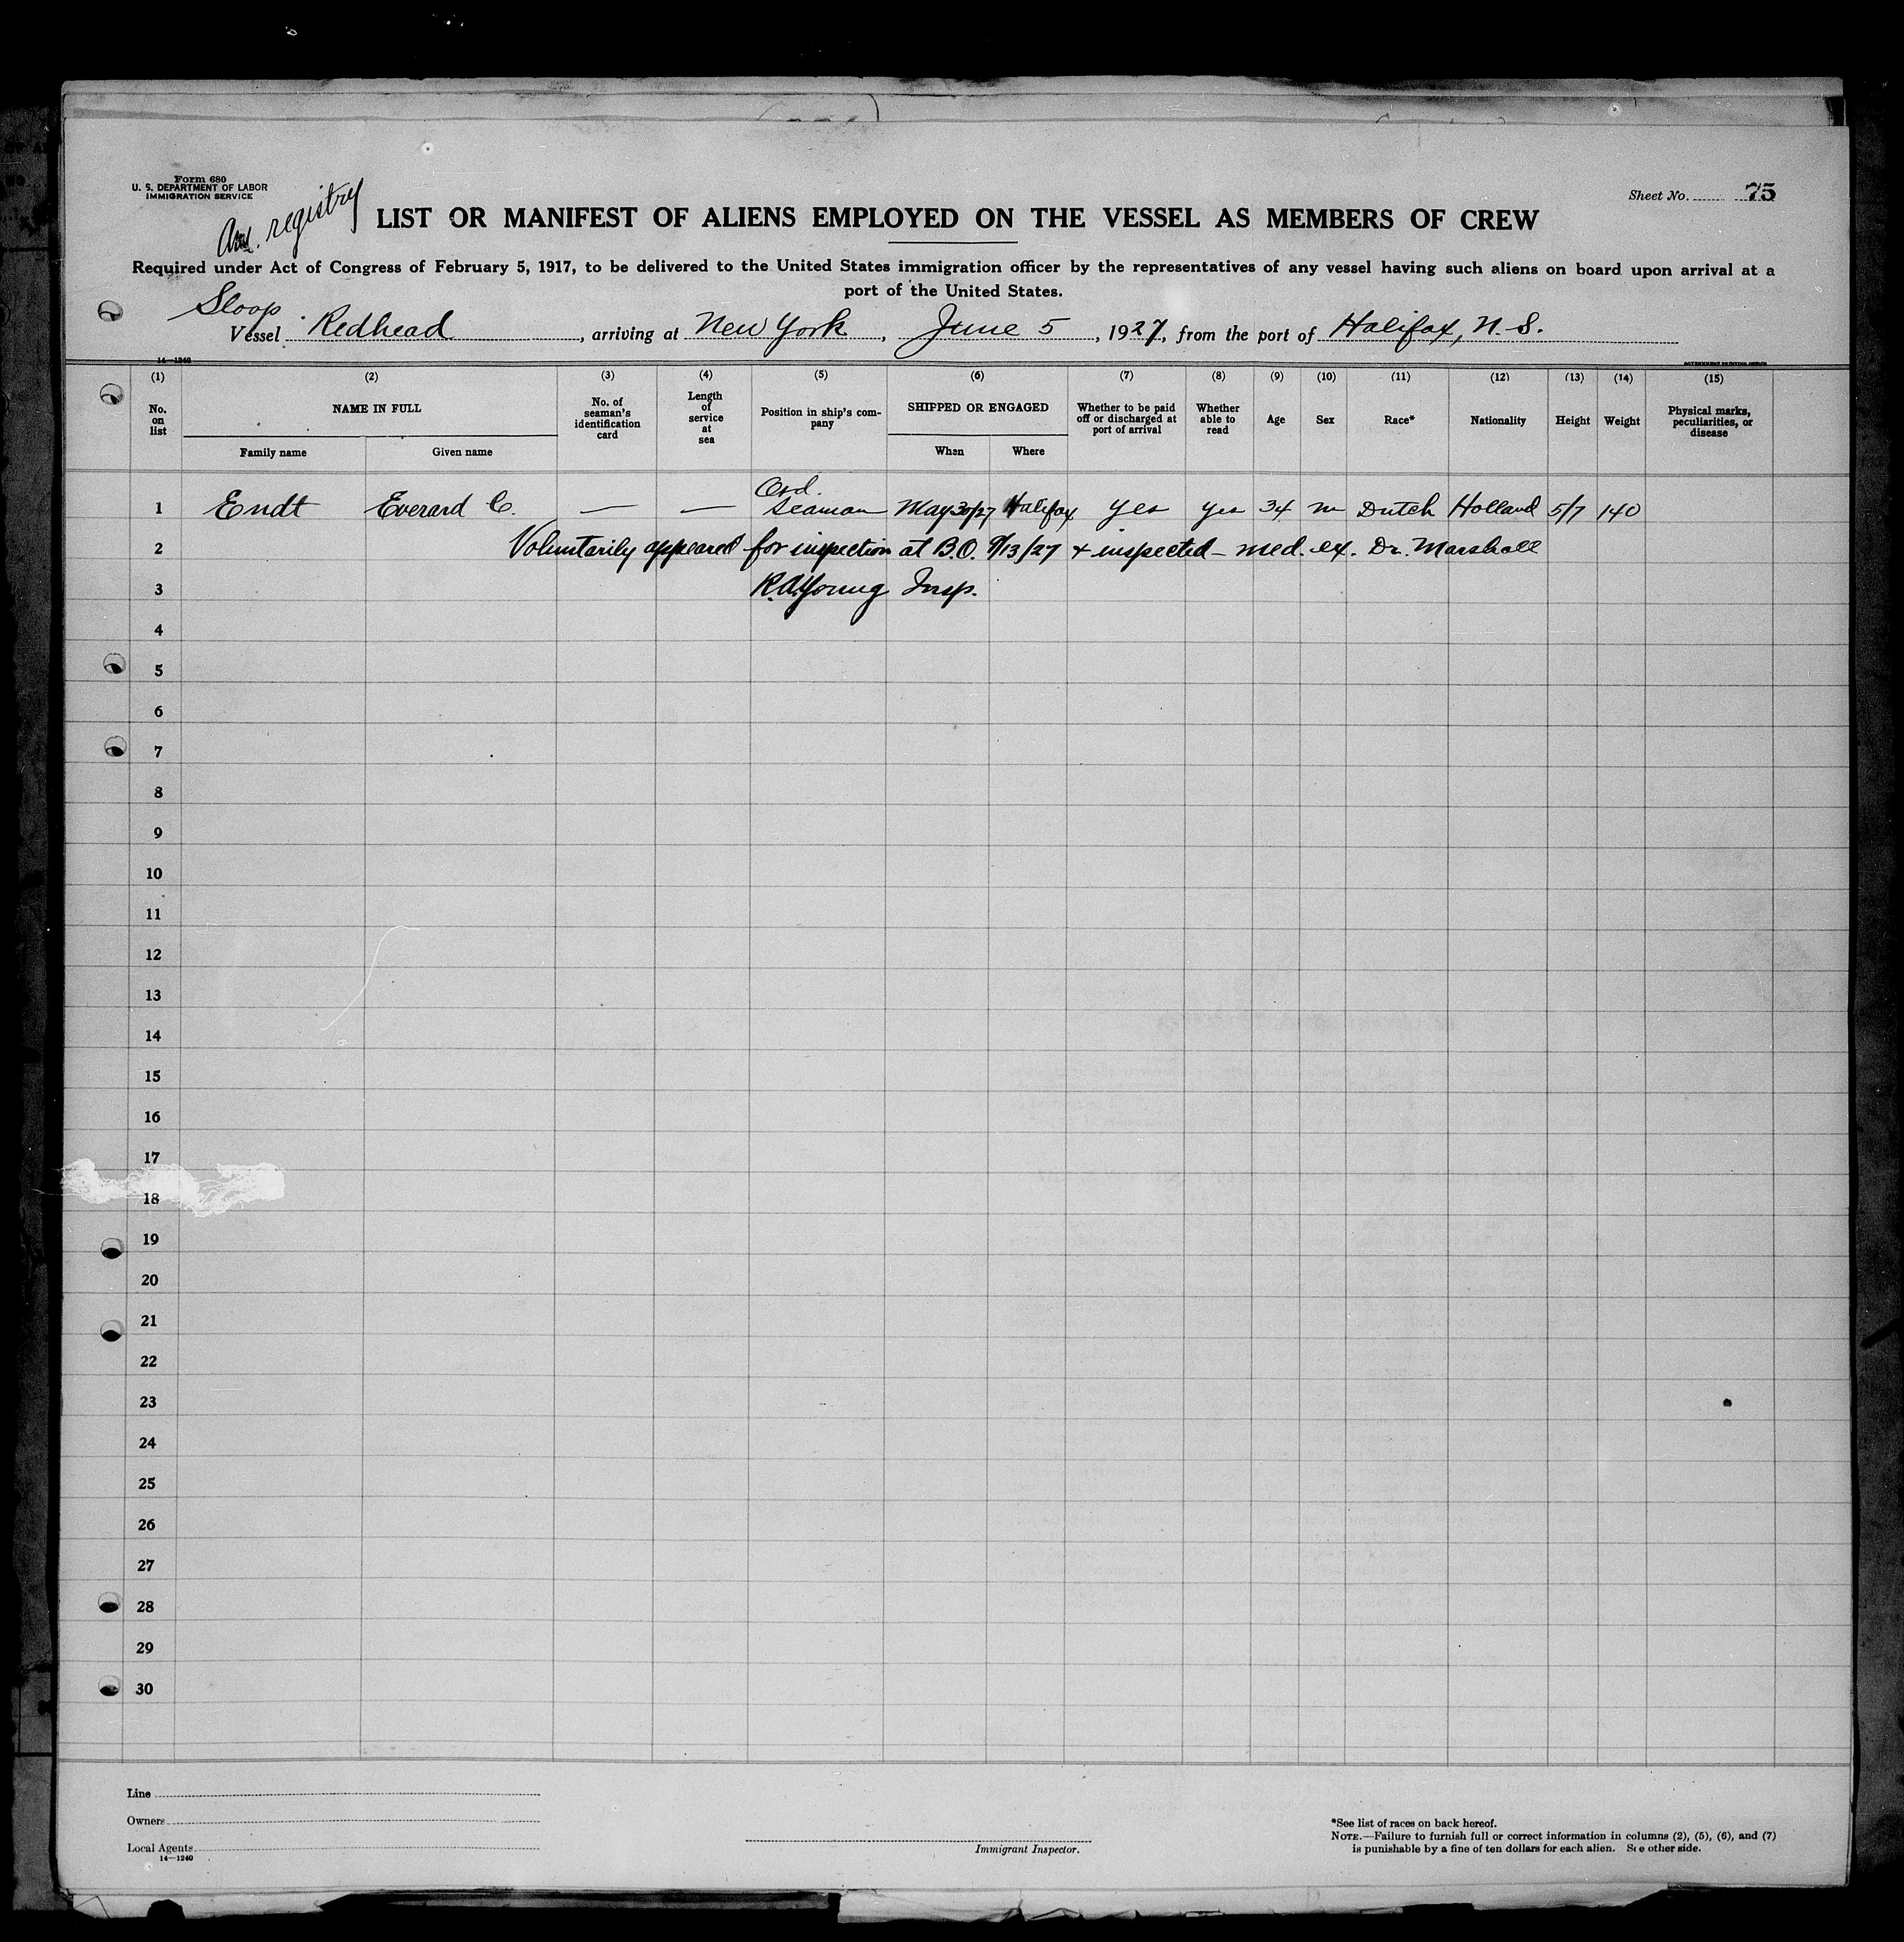 Form 680
U. S. DEPARTMENT OF LABOR
IMMIGRATION SERVICE
Am. registry
Sheet No. 75
LIST OR MANIFEST OF ALIENS EMPLOYED ON THE VESSEL AS MEMBERS OF CREW
Required under Act of Congress of February 5, 1917, to be delivered to the United States immigration officer by the representatives of any vessel having such aliens on board upon arrival at a
port of the United States.
Sloop
Vessel Redhead, arriving at New York, June 5, 1927, from the port of Halifax, N. S.
14—1240
GOVERNMENT PRINTING OFFICE
(1) (2) (3) (4) (5) (6) (7) (8) (9) (10) (11) (12) (13) (14) (15)
No. on list
NAME IN FULL
Family name
Given name
No. of seaman's identification card
Length of service at sea
Position in ship's company
SHIPPED OR ENGAGED
When
Where
Whether to be paid off or discharged at port of arrival
Whether able to read
Age
Sex
Race*
Nationality
Height
Weight
Physical marks, peculiarities, or disease
1 Endt Everard C. — — Ord. Seaman May 30/27 Halifax Yes Yes 34 m Dutch Holland 5/7 140
2 Voluntarily appeared for inspection at B.O. 9/13/27 + inspected – med. ex. Dr. Marshall
3 R.A. Young Insp.
4
5
6
7
8
9
10
11
12
13
14
15
16
17
18
19
20
21
22
23
24
25
26
27
28
29
30
Line
Owners
Local Agents
14—1240
Immigrant Inspector.
*See list of races on back hereof.
NOTE.—Failure to furnish full or correct information in columns (2), (5), (6), and (7)
is punishable by a fine of ten dollars for each alien. See other side.